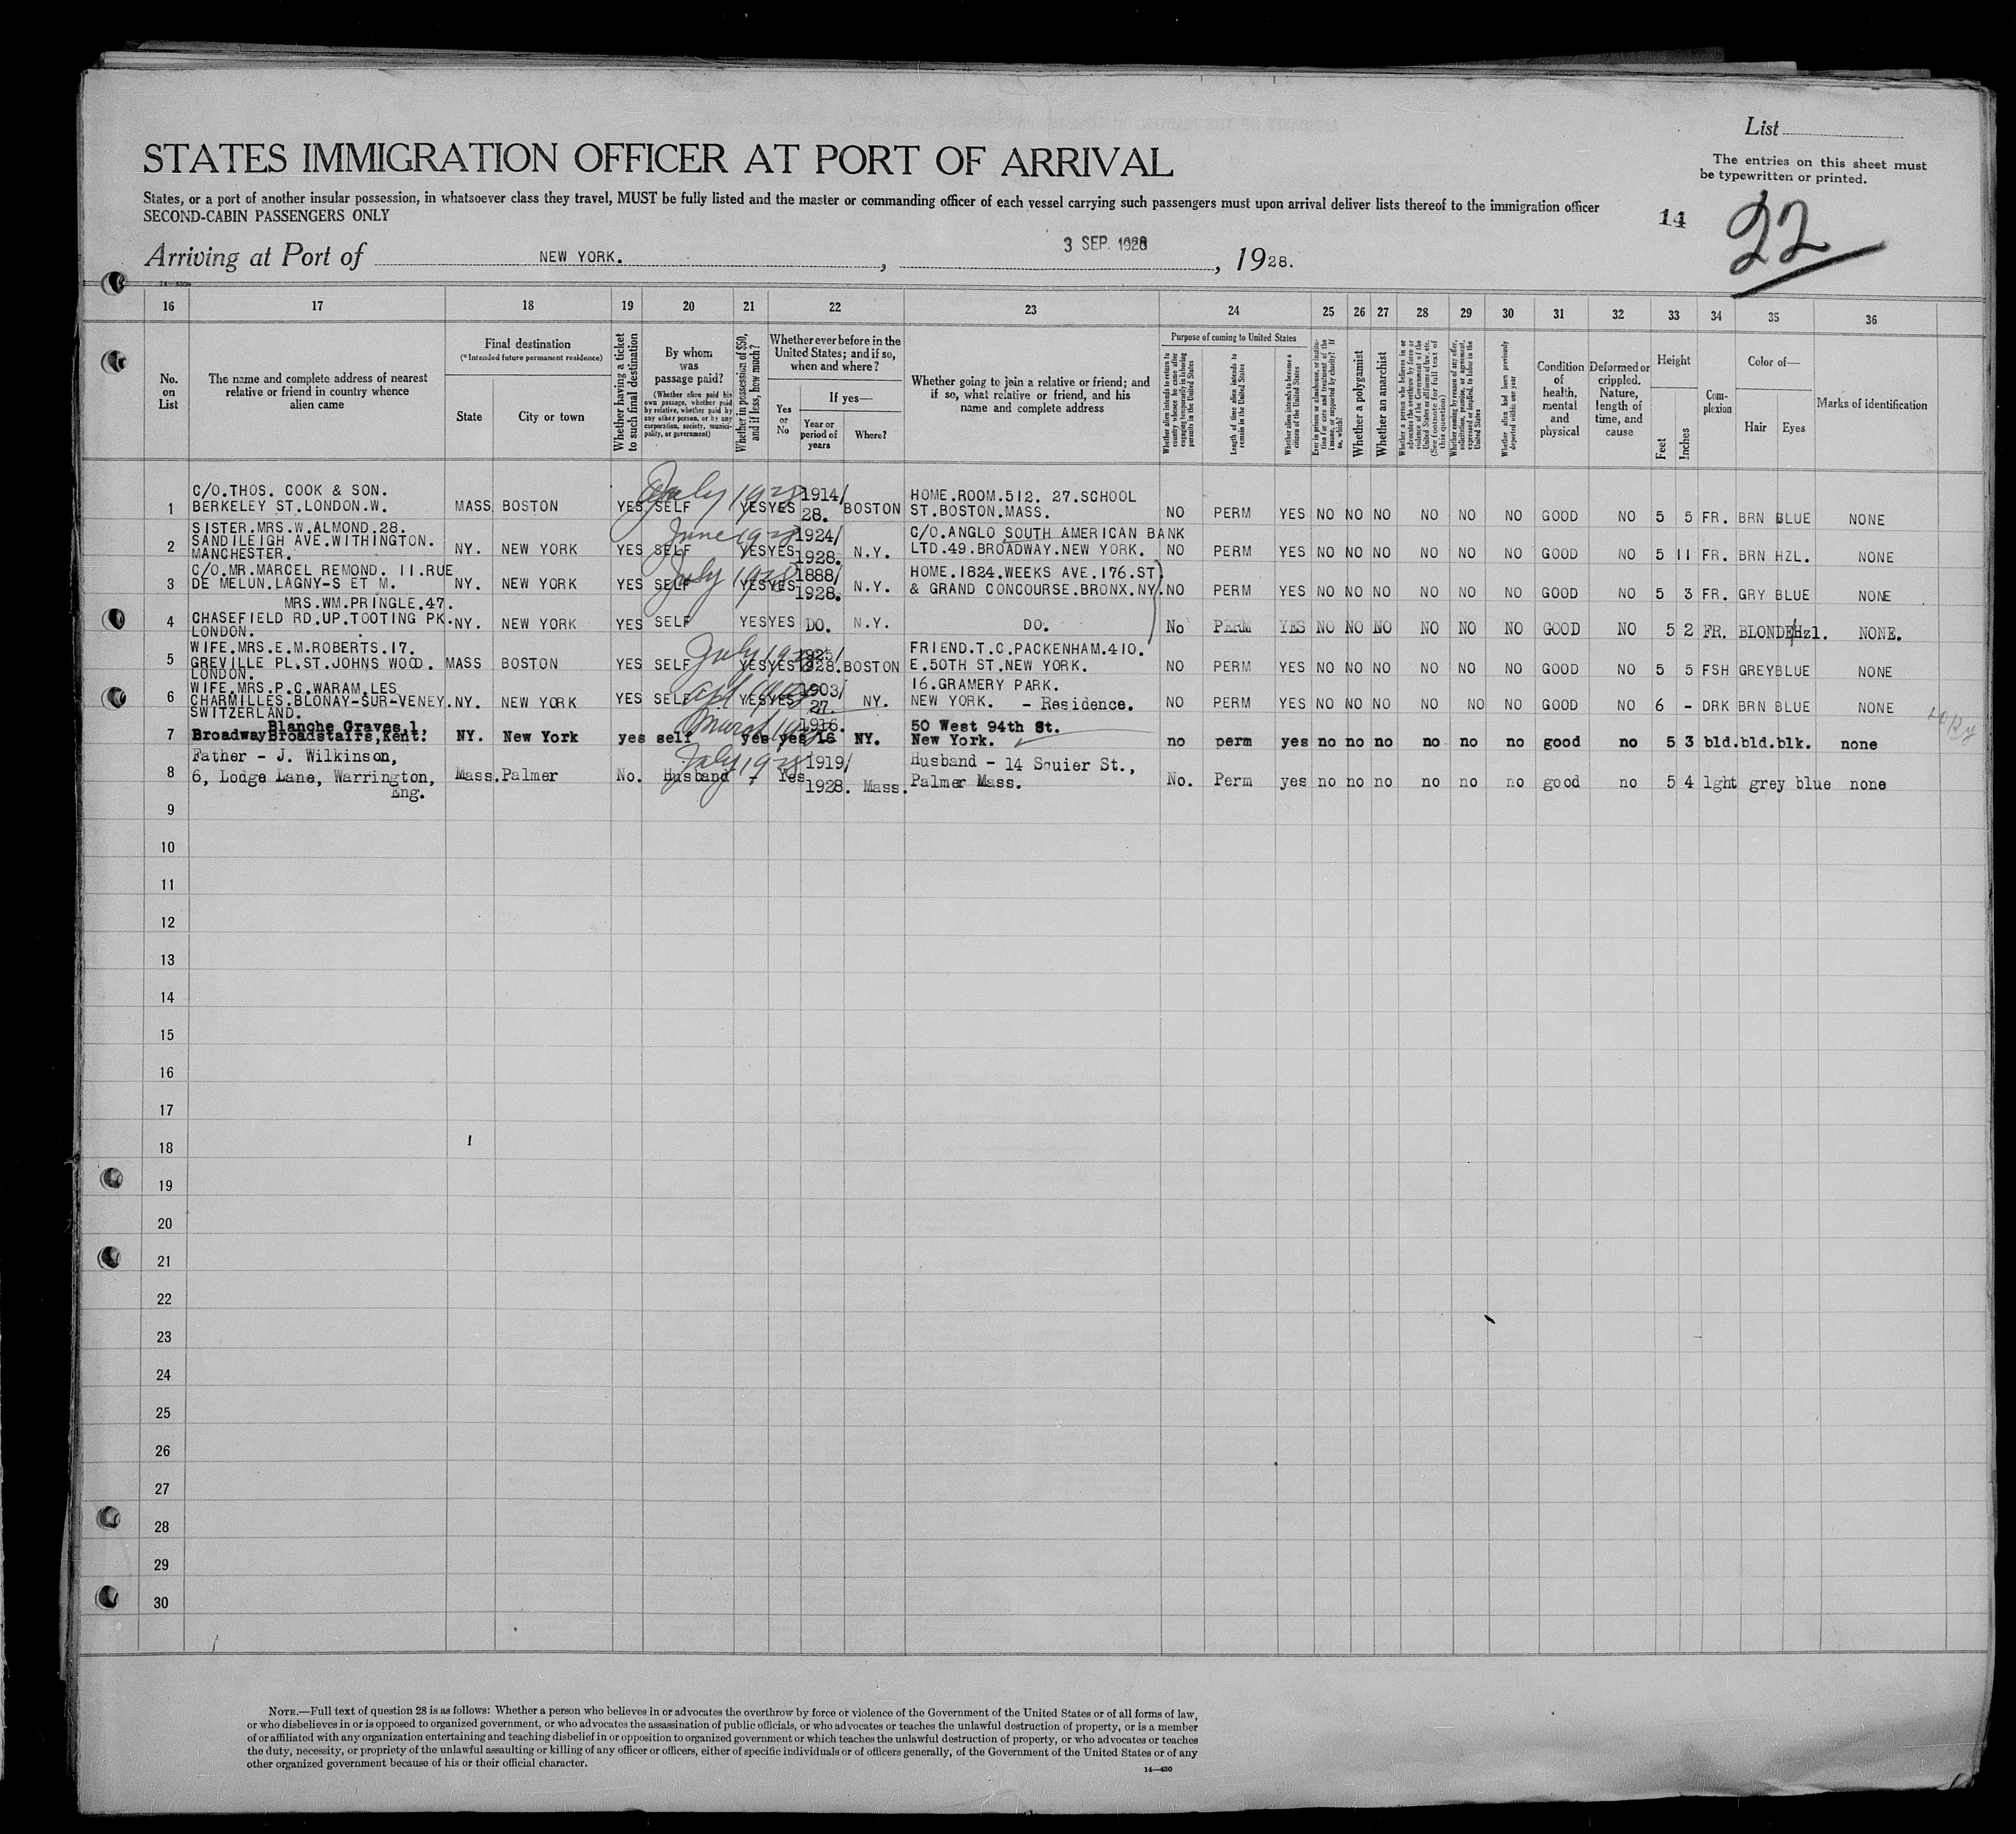 List
STATES IMMIGRATION OFFICER AT PORT OF ARRIVAL
The entries on this sheet must
be typewritten or printed.
States, or a port of another insular possession, in whatsoever class they travel, MUST be fully listed and the master or commanding officer of each vessel carrying such passengers must upon arrival deliver lists thereof to the immigration officer
SECOND-CABIN PASSENGERS ONLY
14 22
Arriving at Port of NEW YORK. , 3 SEP. 1928 , 1928.
16 17 18 19 20 21 22 23 24 25 26 27 28 29 30 31 32 33 34 35 36
No. on List
The name and complete address of nearest relative or friend in country whence alien came
Final destination
(*Intended future permanent residence)
State
City or town
Whether having a ticket to such final destination
By whom was passage paid?
(Whether alien paid his own passage, whether paid by relative, whether paid by any other person, or by any corporation, society, municipality, or government)
Whether in possession of $50, and if less, how much?
Whether ever before in the United States; and if so, when and where?
Yes or No
If yes—
Year or period of years
Where?
Whether going to join a relative or friend; and if so, what relative or friend, and his name and complete address
Purpose of coming to United States
Whether alien intends to return to country whence he came after engaging temporarily in laboring pursuits in the United States
Length of time alien intends to remain in the United States
Whether alien intends to become a citizen of the United States
Ever in prison or almshouse, or institution for care and treatment of the insane, or supported by charity? If so, which?
Whether a polygamist
Whether an anarchist
Whether a person who believes in or advocates the overthrow by force or violence of the Government of the United States or all forms of law, etc. (See footnote for full text of this question)
Whether coming by reason of any offer, solicitation, promise, or agreement, expressed or implied, to labor in the United States
Whether alien had been previously deported within one year
Condition of health, mental and physical
Deformed or crippled. Nature, length of time, and cause
Height
Feet
Inches
Complexion
Color of—
Hair
Eyes
Marks of identification
1 C/O.THOS. COOK & SON. BERKELEY ST.LONDON.W. MASS BOSTON YES SELF July 1928 YES YES 1914/28. BOSTON HOME.ROOM.512. 27.SCHOOL ST.BOSTON.MASS. NO PERM YES NO NO NO NO NO NO GOOD NO 5 5 FR. BRN BLUE NONE
2 SISTER.MRS.W.ALMOND.28. SANDILEIGH AVE.WITHINGTON. MANCHESTER. NY. NEW YORK YES SELF June 1928 YES YES 1924/1928. N.Y. C/O.ANGLO SOUTH AMERICAN BANK LTD.49.BROADWAY.NEW YORK. NO PERM YES NO NO NO NO NO NO GOOD NO 5 11 FR. BRN HZL. NONE
3 C/O.MR.MARCEL REMOND. 11.RUE DE MELUN.LAGNY-S ET M. NY. NEW YORK YES SELF July 1928 YES YES 1888/1928. N.Y. HOME.1824.WEEKS AVE.176.ST & GRAND CONCOURSE.BRONX.NY. NO PERM YES NO NO NO NO NO NO GOOD NO 5 3 FR. GRY BLUE NONE
4 MRS.WM.PRINGLE.47. CHASEFIELD RD.UP.TOOTING PK. LONDON. NY. NEW YORK YES SELF YES YES DO. N.Y. DO. No PERM YES NO NO NO NO NO NO GOOD NO 5 2 FR. BLONDE/Hzl. NONE.
5 WIFE.MRS.E.M.ROBERTS.17. GREVILLE PL.ST.JOHNS WOOD. LONDON. MASS BOSTON YES SELF July YES YES 1925/1928. BOSTON FRIEND.T.C.PACKENHAM.410. E.50TH ST.NEW YORK. NO PERM YES NO NO NO NO NO NO GOOD NO 5 5 FSH GREY BLUE NONE
6 WIFE.MRS.P.C.WARAM.LES CHARMILLES.BLONAY-SUR-VENEY. SWITZERLAND. NY. NEW YORK YES SELF YES YES 1903/27. NY. 16.GRAMERY PARK. NEW YORK. - Residence. NO PERM YES NO NO NO NO NO NO GOOD NO 6 - DRK BRN BLUE NONE
7 Blanche Graves,1, Broadway Broadstairs,Kent. NY. New York yes self March yes yes 1916. 16 NY. 50 West 94th St. New York. no perm yes no no no no no no good no 5 3 bld. bld. blk. none
8 Father - J. Wilkinson, 6, Lodge Lane, Warrington, Eng. Mass. Palmer No. Husband July 1928 Yes 1919/1928. Mass. Husband - 14 Squier St., Palmer Mass. No. Perm yes no no no no no no good no 5 4 lght grey blue none
9
10
11
12
13
14
15
16
17
18
19
20
21
22
23
24
25
26
27
28
29
30
NOTE.—Full text of question 28 is as follows: Whether a person who believes in or advocates the overthrow by force or violence of the Government of the United States or of all forms of law,
or who disbelieves in or is opposed to organized government, or who advocates the assassination of public officials, or who advocates or teaches the unlawful destruction of property, or is a member
of or affiliated with any organization entertaining and teaching disbelief in or opposition to organized government or which teaches the unlawful destruction of property, or who advocates or teaches
the duty, necessity, or propriety of the unlawful assaulting or killing of any officer or officers, either of specific individuals or of officers generally, of the Government of the United States or of any
other organized government because of his or their official character.
14—430